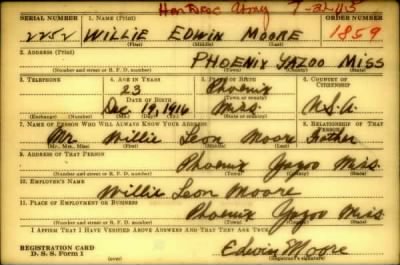 Hon Disc Army 7-21-45
SERIAL NUMBER 1. NAME (Print) ORDER NUMBER
2252 WILLIE EDWIN MOORE 1859
(First) (Middle) (Last)
2. ADDRESS (Print)
PHOENIX YAZOO MISS
(Number and street or R. F. D. number) (Town) (County) (State)
3. TELEPHONE 4. AGE IN YEARS 5. PLACE OF BIRTH 6. COUNTRY OF CITIZENSHIP
23 Phoenix
DATE OF BIRTH (Town or county)
Dec 19, 1916 Miss. U.S.A.
(Exchange) (Number) (Mo.) (Day) (Yr.) (State or country)
7. NAME OF PERSON WHO WILL ALWAYS KNOW YOUR ADDRESS 8. RELATIONSHIP OF THAT PERSON
Mr. Willie Leon Moore Father
(Mr., Mrs., Miss) (First) (Middle) (Last)
9. ADDRESS OF THAT PERSON
Phoenix Yazoo Miss.
(Number and street or R. F. D. number) (Town) (County) (State)
10. EMPLOYER'S NAME
Willie Leon Moore
11. PLACE OF EMPLOYMENT OR BUSINESS
Phoenix Yazoo Miss
(Number and street or R. F. D. number) (Town) (County) (State)
I AFFIRM THAT I HAVE VERIFIED ABOVE ANSWERS AND THAT THEY ARE TRUE.
REGISTRATION CARD
D. S. S. Form 1 (over) Edwin Moore
(Registrant's signature)